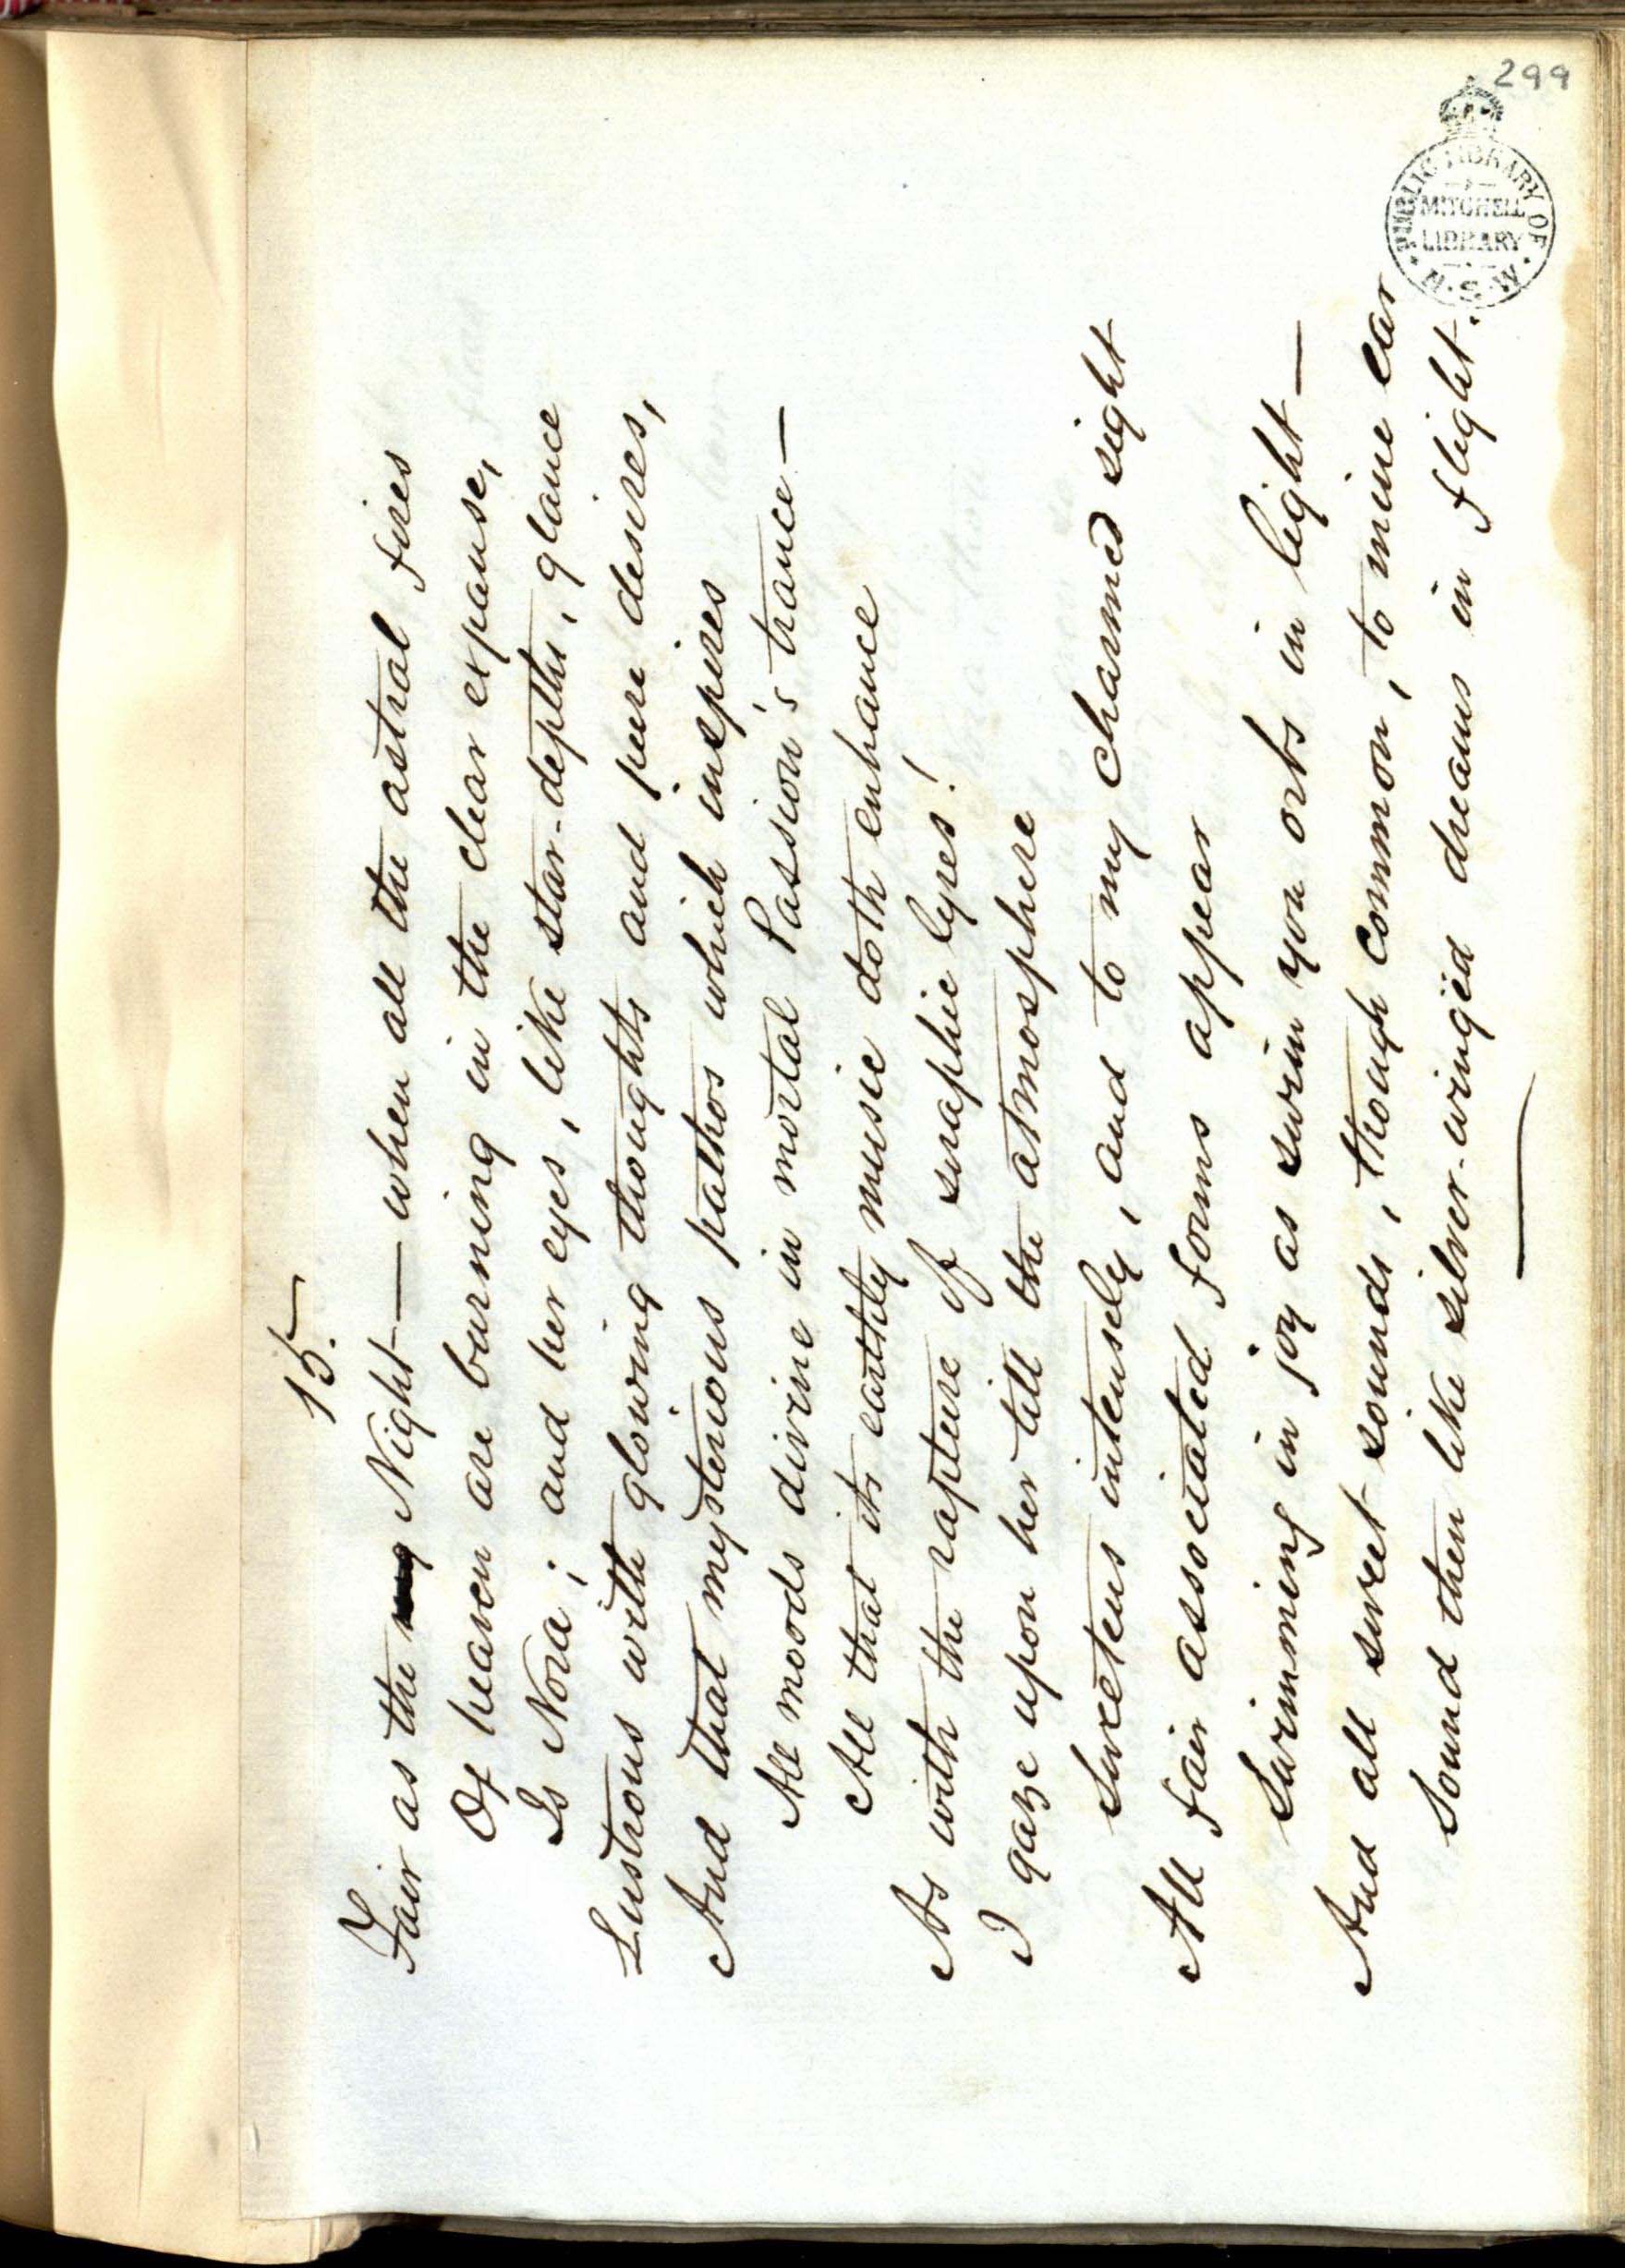 299
PUBLIC LIBRARY OF N.S.W.
MITCHELL
LIBRARY
15.
Fair as the Night — when all the astral fires
Of heaven are burning in the clear expanse,
Is Nora; and her eyes, like star-depths, glance
Lustrous with glowing thoughts and pure desires,
And that mysterious pathos which inspires
All moods divine in mortal Passion's trance —
All that its earthly music doth enhance
As with the rapture of seraphic lyres!
I gaze upon her till the atmosphere
Sweetens intensely, and to my charmed sight
All fair associated forms appear
Swimming in joy as swim yon orbs in light —
And all sweet sounds, though common, to mine ear
Sound then like silver-winged dreams in flight.